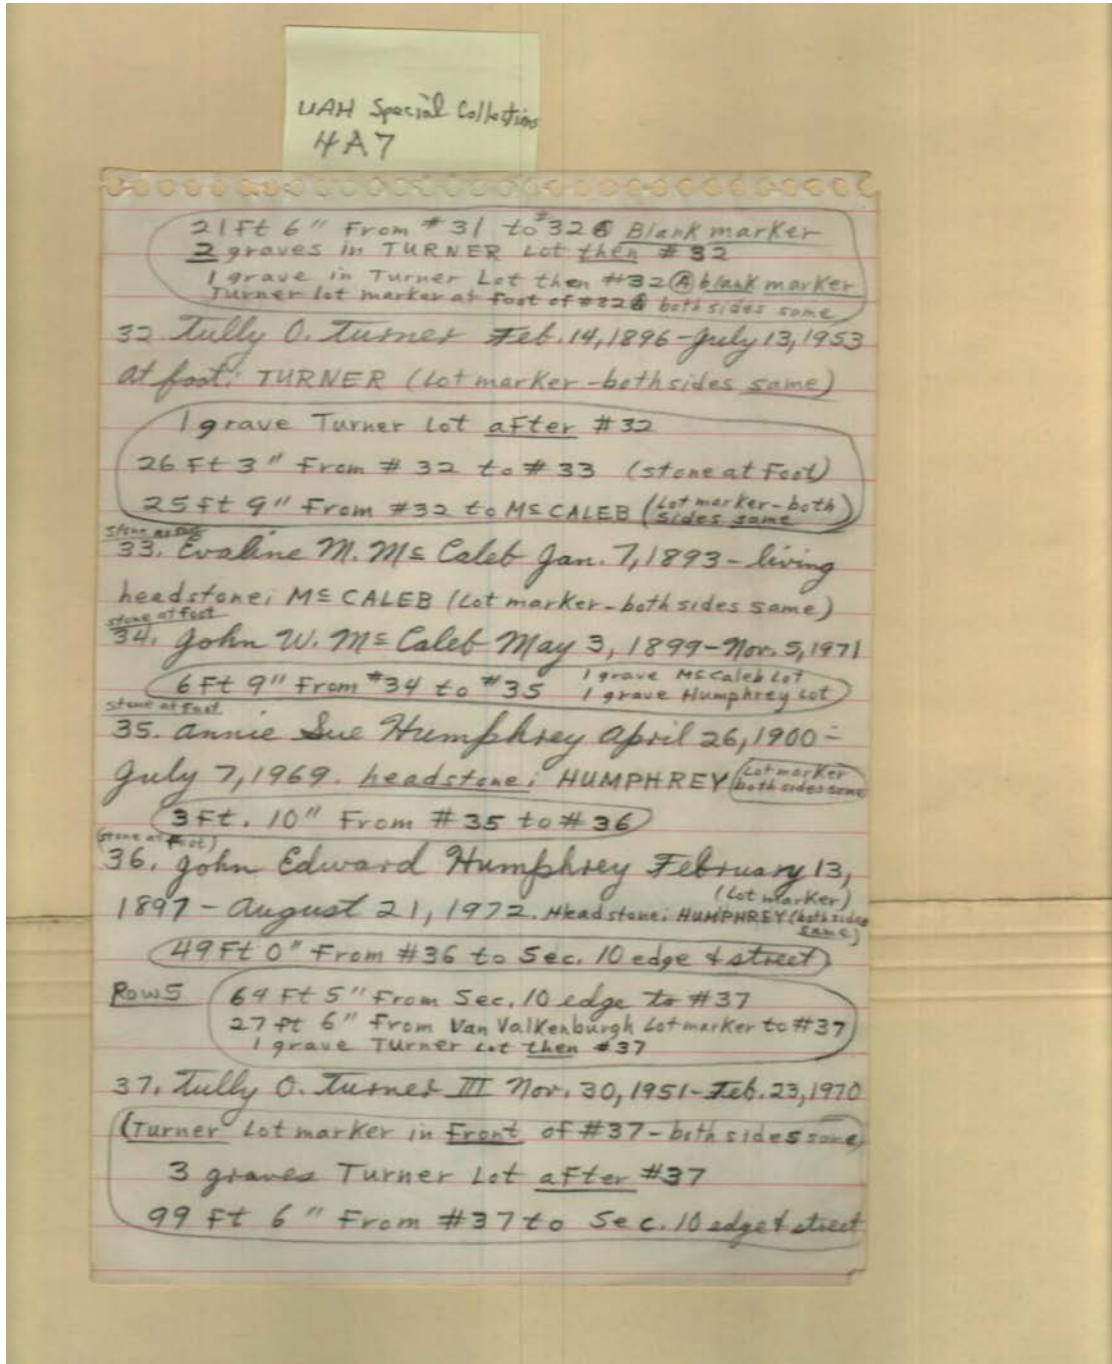 UAH Special Collections
4A7
21 Ft 6" From #31 to #32 Ⓐ Blank marker
2 graves in TURNER Lot then #32
1 grave in Turner Lot then #32 Ⓐ blank marker
Turner lot marker at foot of #32 both sides same
32. Tully O. Turner Feb. 14, 1896 - July 13, 1953
at foot: TURNER (Lot marker - both sides same)
1 grave Turner Lot after #32
26 Ft 3" From #32 to #33 (stone at Foot)
25 ft 9" From #32 to Mc CALEB (Lot marker - both
sides same)
stone at foot
33. Evaline M. Mc Caleb Jan. 7, 1893 - living
headstone: Mc CALEB (Lot marker - both sides same)
stone at foot
34. John W. Mc Caleb May 3, 1899 - Nov. 5, 1971
6 Ft 9" From #34 to #35 1 grave McCaleb Lot
1 grave Humphrey Lot
stone at foot
35. Annie Sue Humphrey April 26, 1900 -
July 7, 1969. headstone: HUMPHREY (Lot marker
both sides same
3 Ft. 10" From #35 to #36
(stone at Foot)
36. John Edward Humphrey February 13,
(Lot marker)
1897 - August 21, 1972. Headstone: HUMPHREY (both sides
same)
49 Ft 0" From #36 to Sec. 10 edge & street
Row 5 64 Ft 5" From Sec. 10 edge to #37
27 ft 6" From Van Valkenburgh Lot marker to #37
1 grave Turner Lot then #37
37. Tully O. Turner III Nov. 30, 1951 - Feb. 23, 1970
(Turner Lot marker in Front of #37 - both sides same)
3 graves Turner Lot after #37
99 Ft 6" From #37 to Sec. 10 edge & street